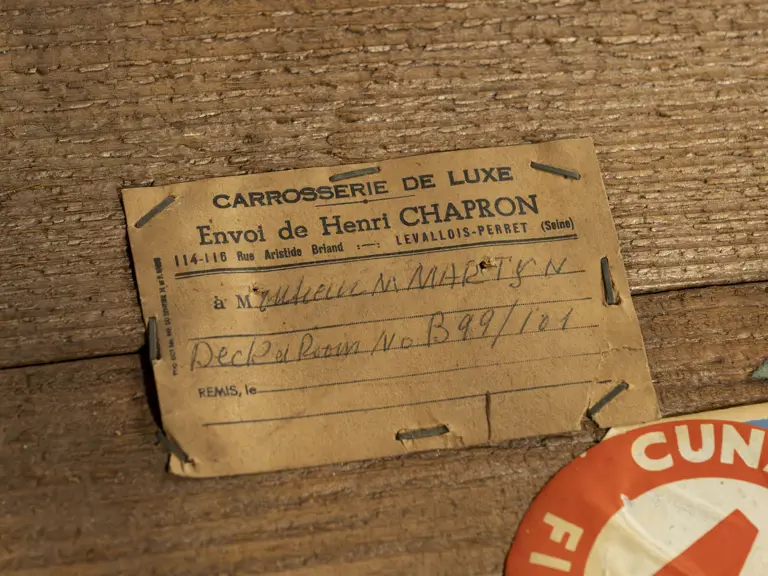 CARROSSERIE DE LUXE
Envoi de Henri CHAPRON
114-116 Rue Aristide Briand :—: LEVALLOIS-PERRET (Seine)
à M MARTYN
Deck a Room No B99/101
REMIS, le
CUNA
FI